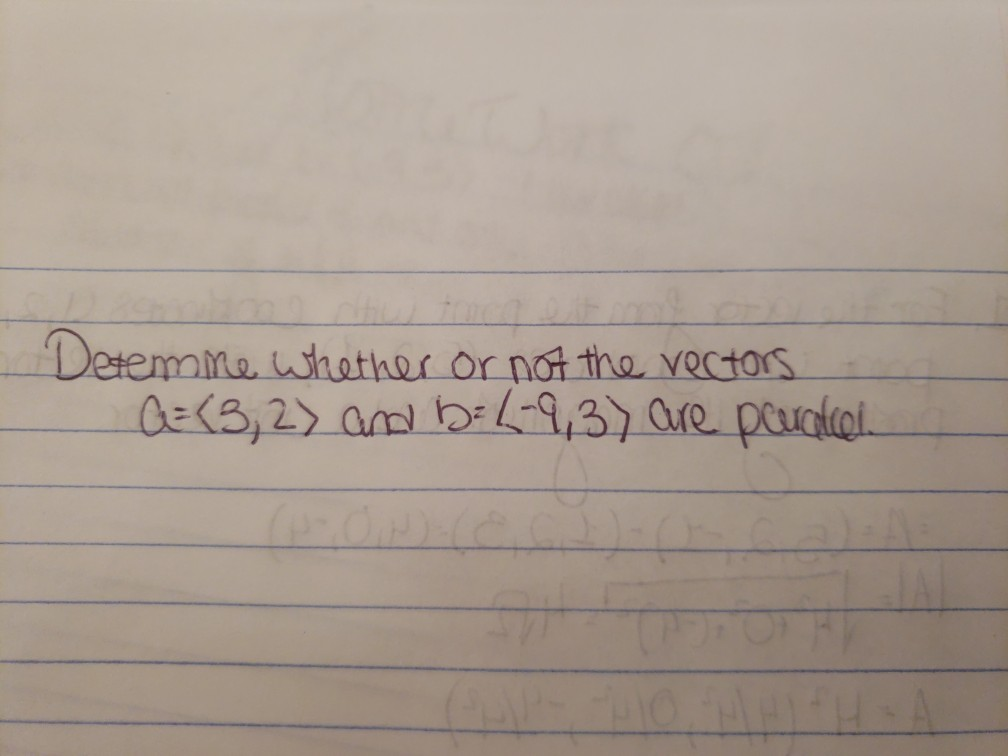 Determine whether or not the vectors
a=<3,2> and b=<-9,3> are parallel.